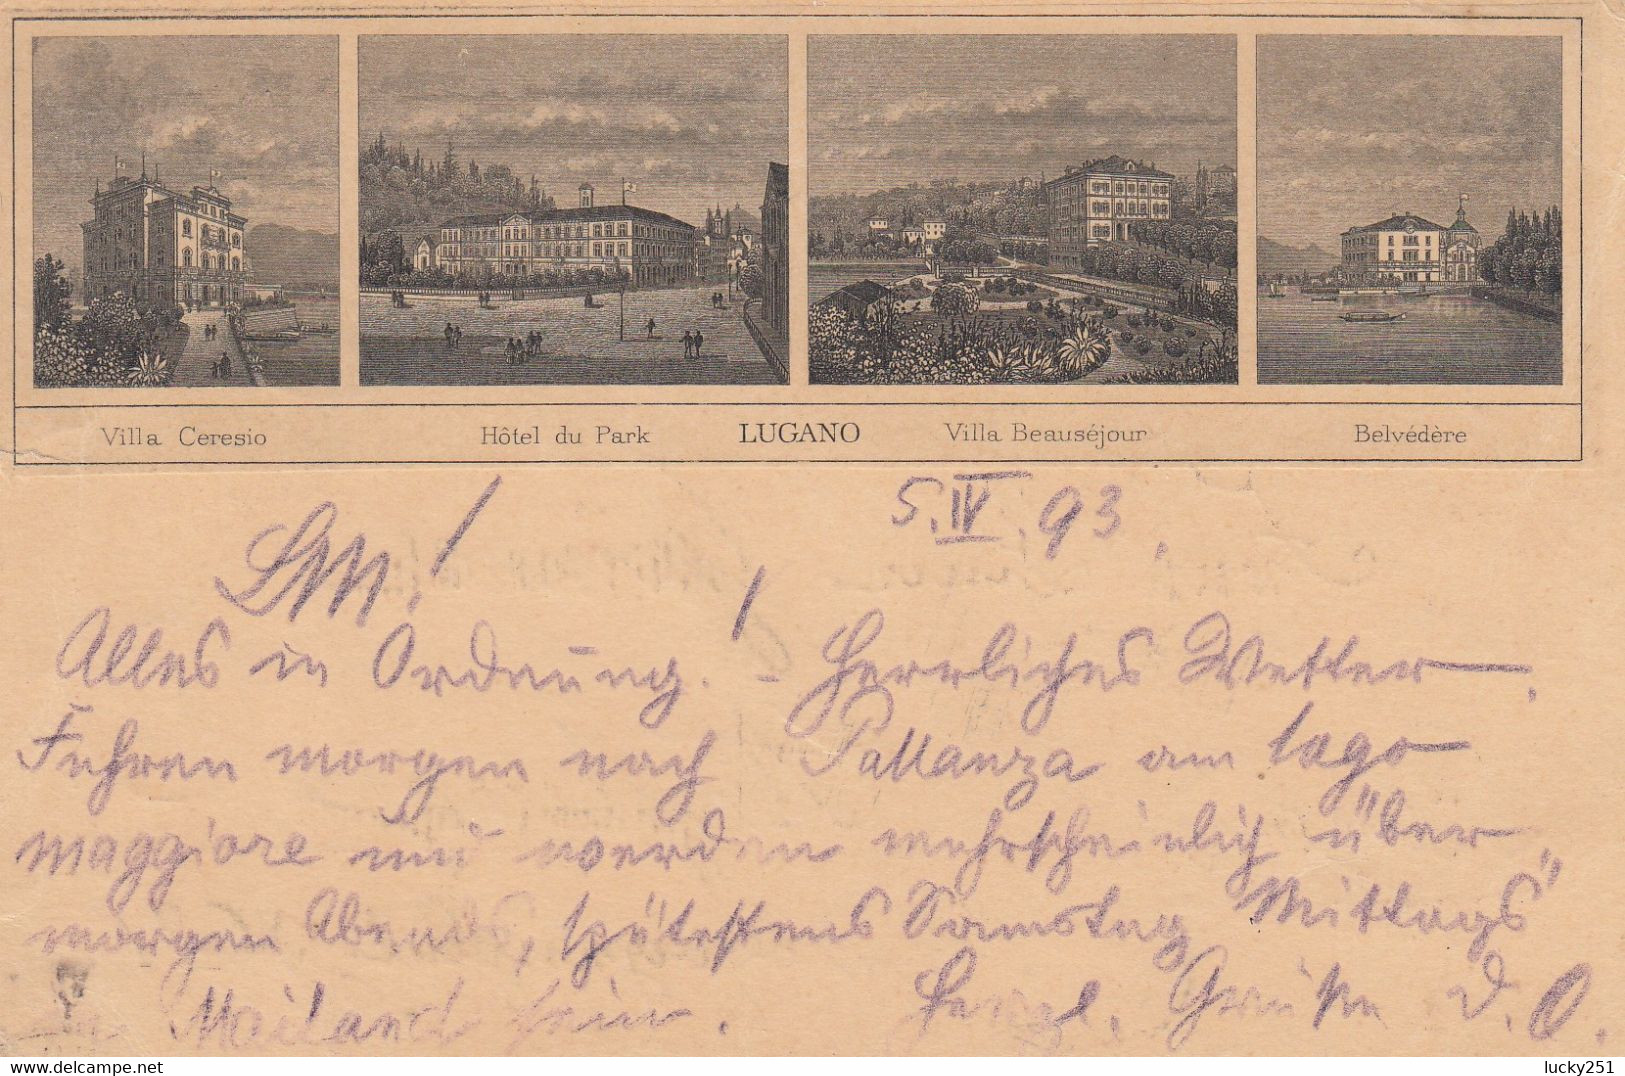 Villa Ceresio Hôtel du Park LUGANO Villa Beauséjour Belvédère
5.IV.93.
Alles in Ordnung! - Herrliches Wetter.
Fahren morgen nach Pallanza am lago
maggiore und werden wahrscheinlich über
morgen Abends, spätestens Samstag "Mittags"
in Mailand sein. Herzl. Grüße d. O.
delcampe.net
lucky251